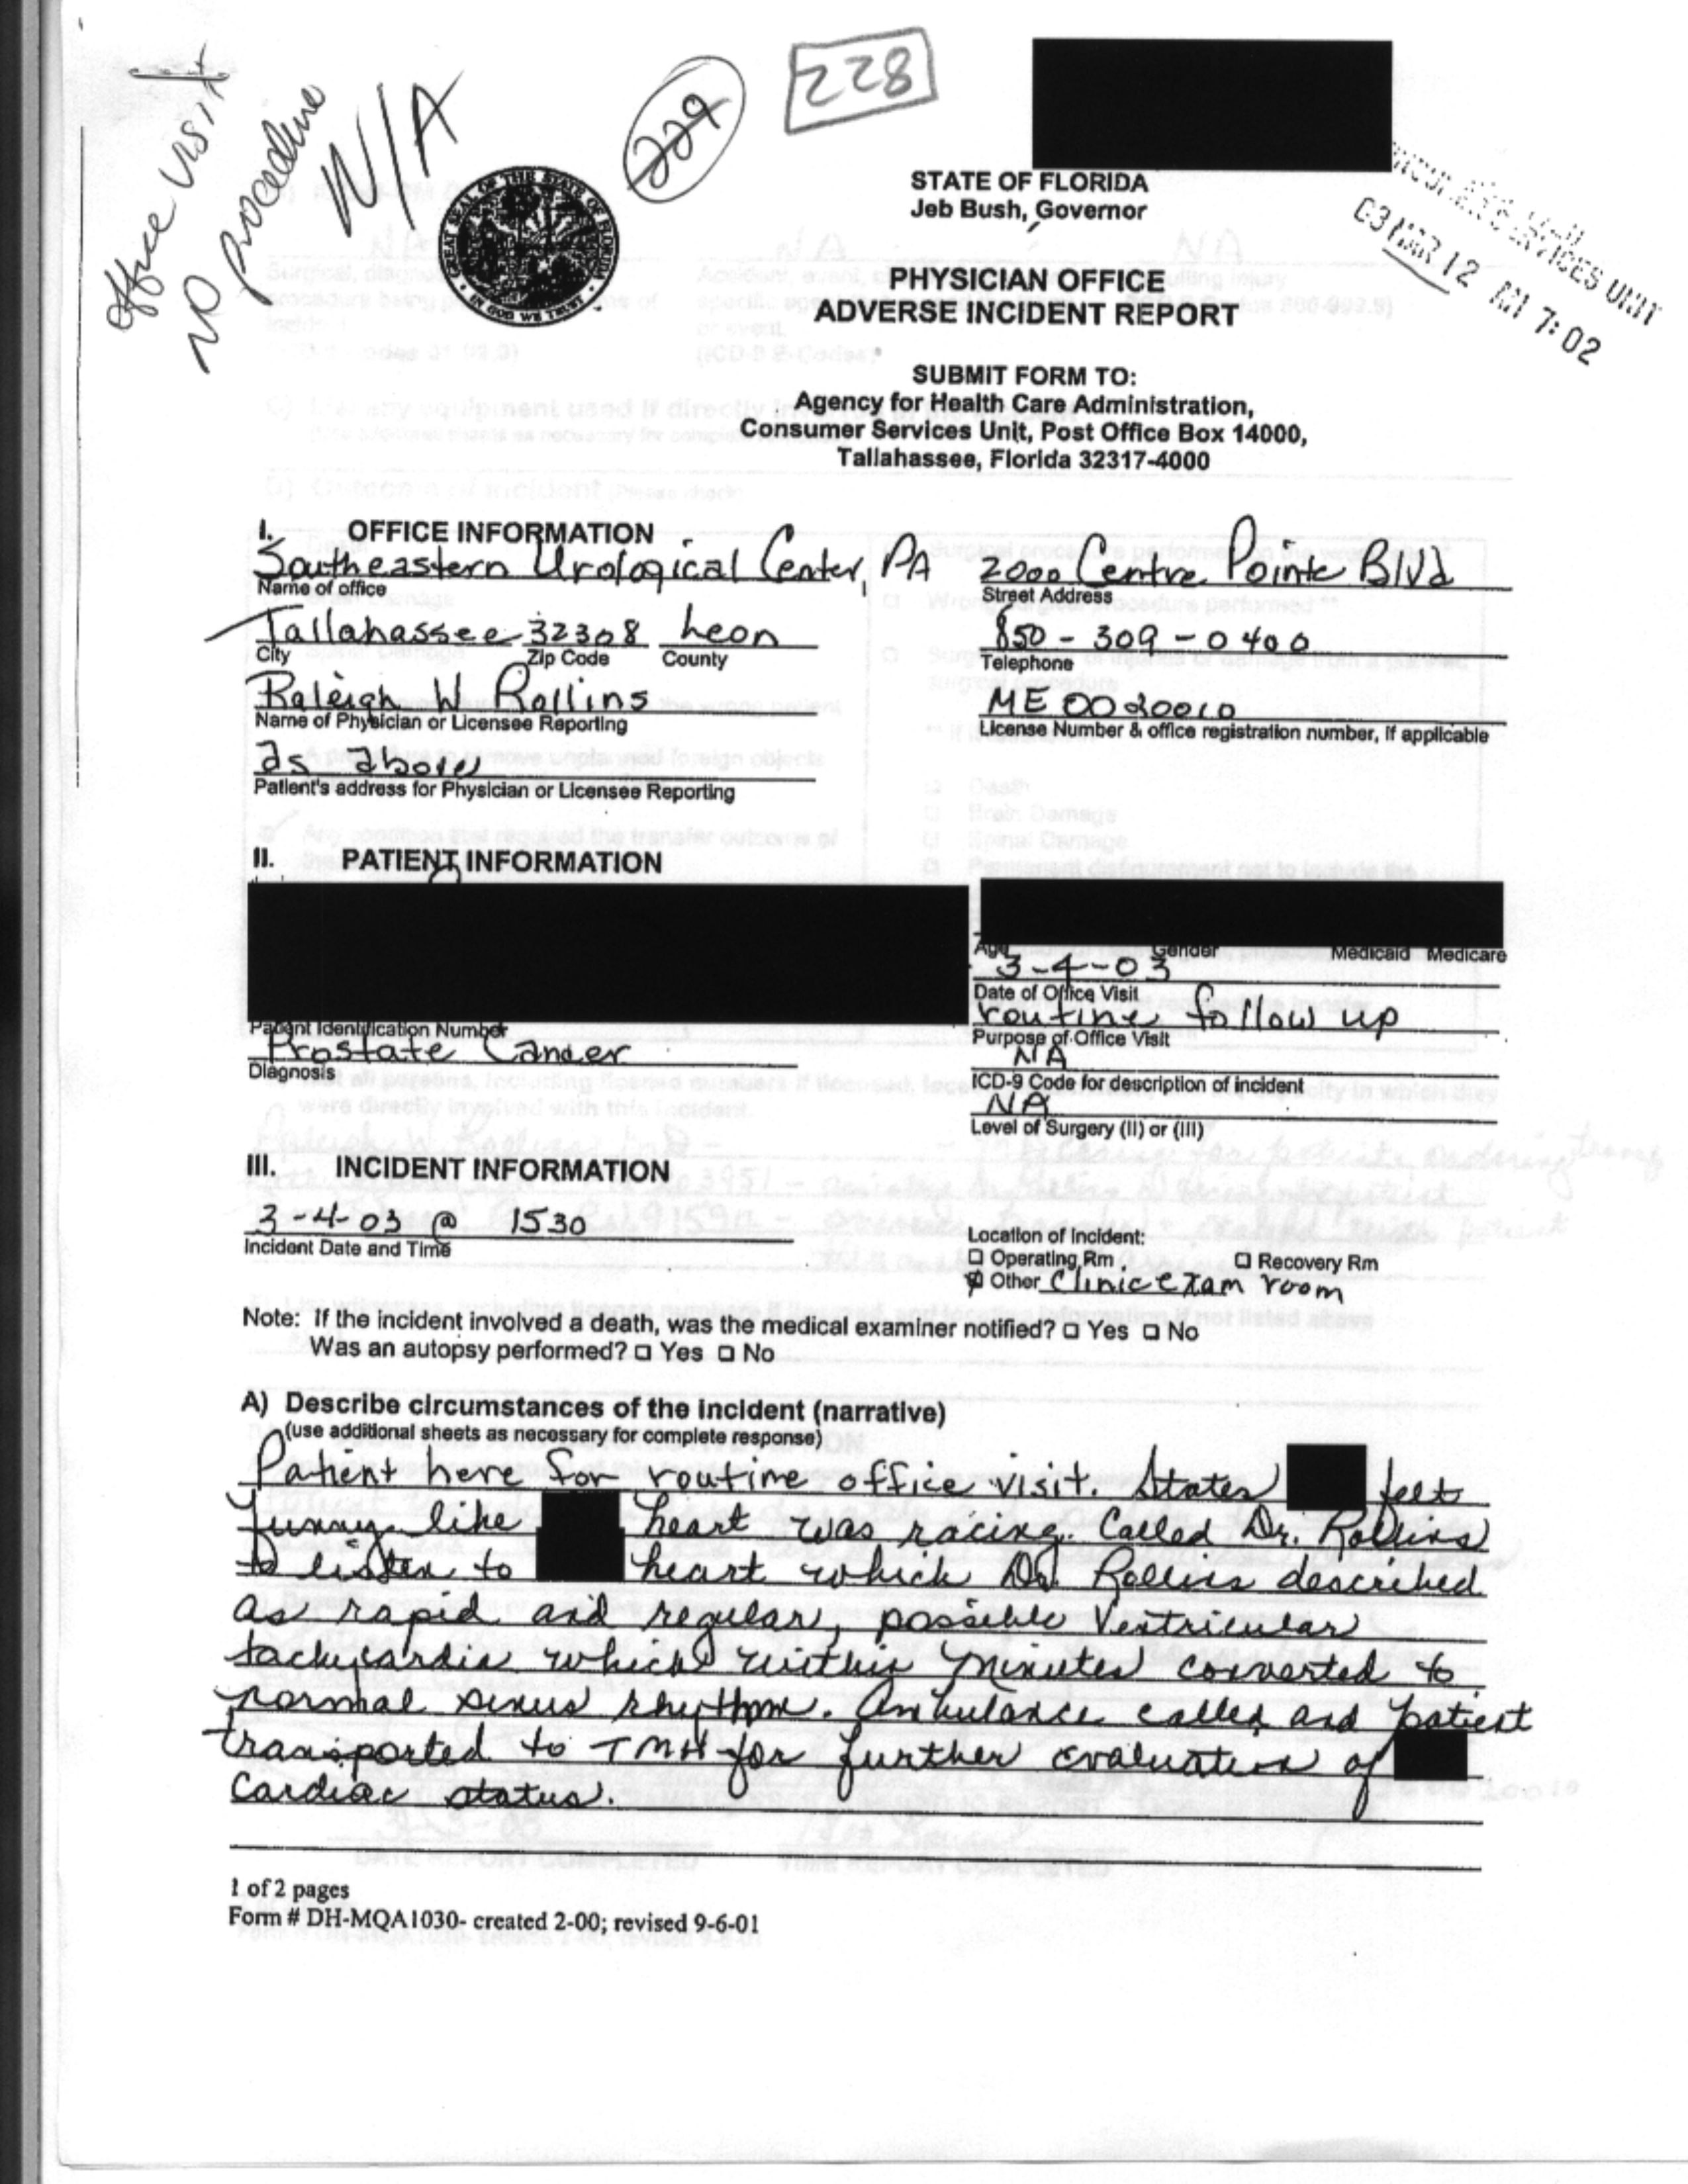 Office Visit
NO Procedure
N/A
229
228
STATE OF FLORIDA
Jeb Bush, Governor
SERVICES UNIT
03 MAR 12 AM 7:02
GREAT SEAL OF THE STATE OF FLORIDA
IN GOD WE TRUST
PHYSICIAN OFFICE
ADVERSE INCIDENT REPORT
SUBMIT FORM TO:
Agency for Health Care Administration,
Consumer Services Unit, Post Office Box 14000,
Tallahassee, Florida 32317-4000
I. OFFICE INFORMATION
Southeastern Urological Center, PA 2000 Centre Pointe Blvd
Name of office Street Address
Tallahassee 32308 Leon 850-309-0400
City Zip Code County Telephone
Raleigh W Rollins ME0020010
Name of Physician or Licensee Reporting License Number & office registration number, if applicable
as above
Patient's address for Physician or Licensee Reporting
II. PATIENT INFORMATION
Age Gender Medicaid Medicare
3-4-03
Date of Office Visit
Patient Identification Number routine follow up
Prostate Cancer Purpose of Office Visit
Diagnosis NA
ICD-9 Code for description of incident
NA
Level of Surgery (II) or (III)
III. INCIDENT INFORMATION
3-4-03 @ 1530
Incident Date and Time Location of Incident:
Operating Rm Recovery Rm
Other Clinic exam room
Note: If the incident involved a death, was the medical examiner notified? Yes No
Was an autopsy performed? Yes No
A) Describe circumstances of the incident (narrative)
(use additional sheets as necessary for complete response)
Patient here for routine office visit. States felt
funny like heart was racing. Called Dr. Rollins
to listen to heart which Dr. Rollins described
as rapid and regular, possible Ventricular
tachycardia which within minutes converted to
normal sinus rhythm. Ambulance called and patient
transported to TMH for further evaluation of
cardiac status.
1 of 2 pages
Form # DH-MQA1030- created 2-00; revised 9-6-01